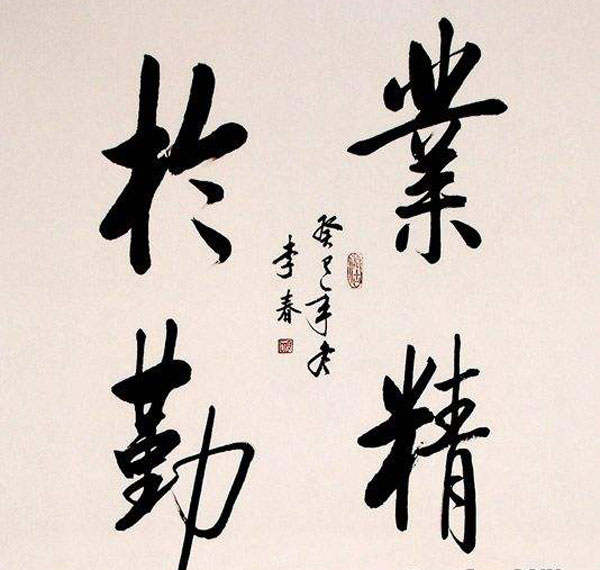 業精
於勤
癸巳年冬
李春